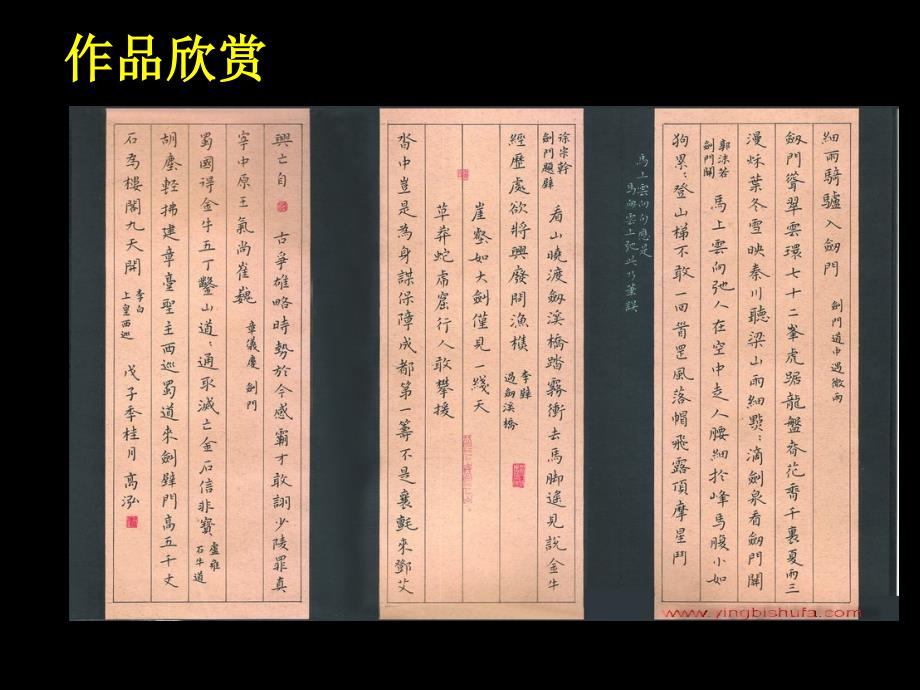 作品欣赏
細雨騎驢入劔門 劍門道中遇微雨
劔門聳翠雲環七十二峯虎踞龍盤春花香千裏夏雨三
漫秌葉冬雪映秦川聽梁山雨細點:滴劍泉看劔門關
郭沫若
劍門關
馬上雲向弛人在空中走人腰細於峰馬腹小如
狗累:登山梯不敢一回首罡風落帽飛露頂摩星鬥
馬上雲向向應是
雲上弛此乃筆誤
徐宗幹
劍門題壁
看山曉渡劔溪橋踏霧衝去馬脚遙見說金牛
經歷處欲將興發問漁樵
李壁
過劍溪橋
崖壑如大劍僅見一綫天
草莽蛇虎窟行人敢攀援
沓中豈是為身謀保障成都第一籌不是襄氈來鄧艾
興亡自古爭雄略時勢於今感霸才敢詡少陵罪真
宰中原王氣尚崔巍
章儀慶 劍門
蜀國得金牛五丁鑿山道:通取滅亡金石信非寶
盧雍
石牛道
胡塵輕拂建章臺聖主西巡蜀道來劍壁門高五千丈
石為樓閣九天開
李白
上皇西巡
戊子季桂月高泓
www.yingbishufa.com